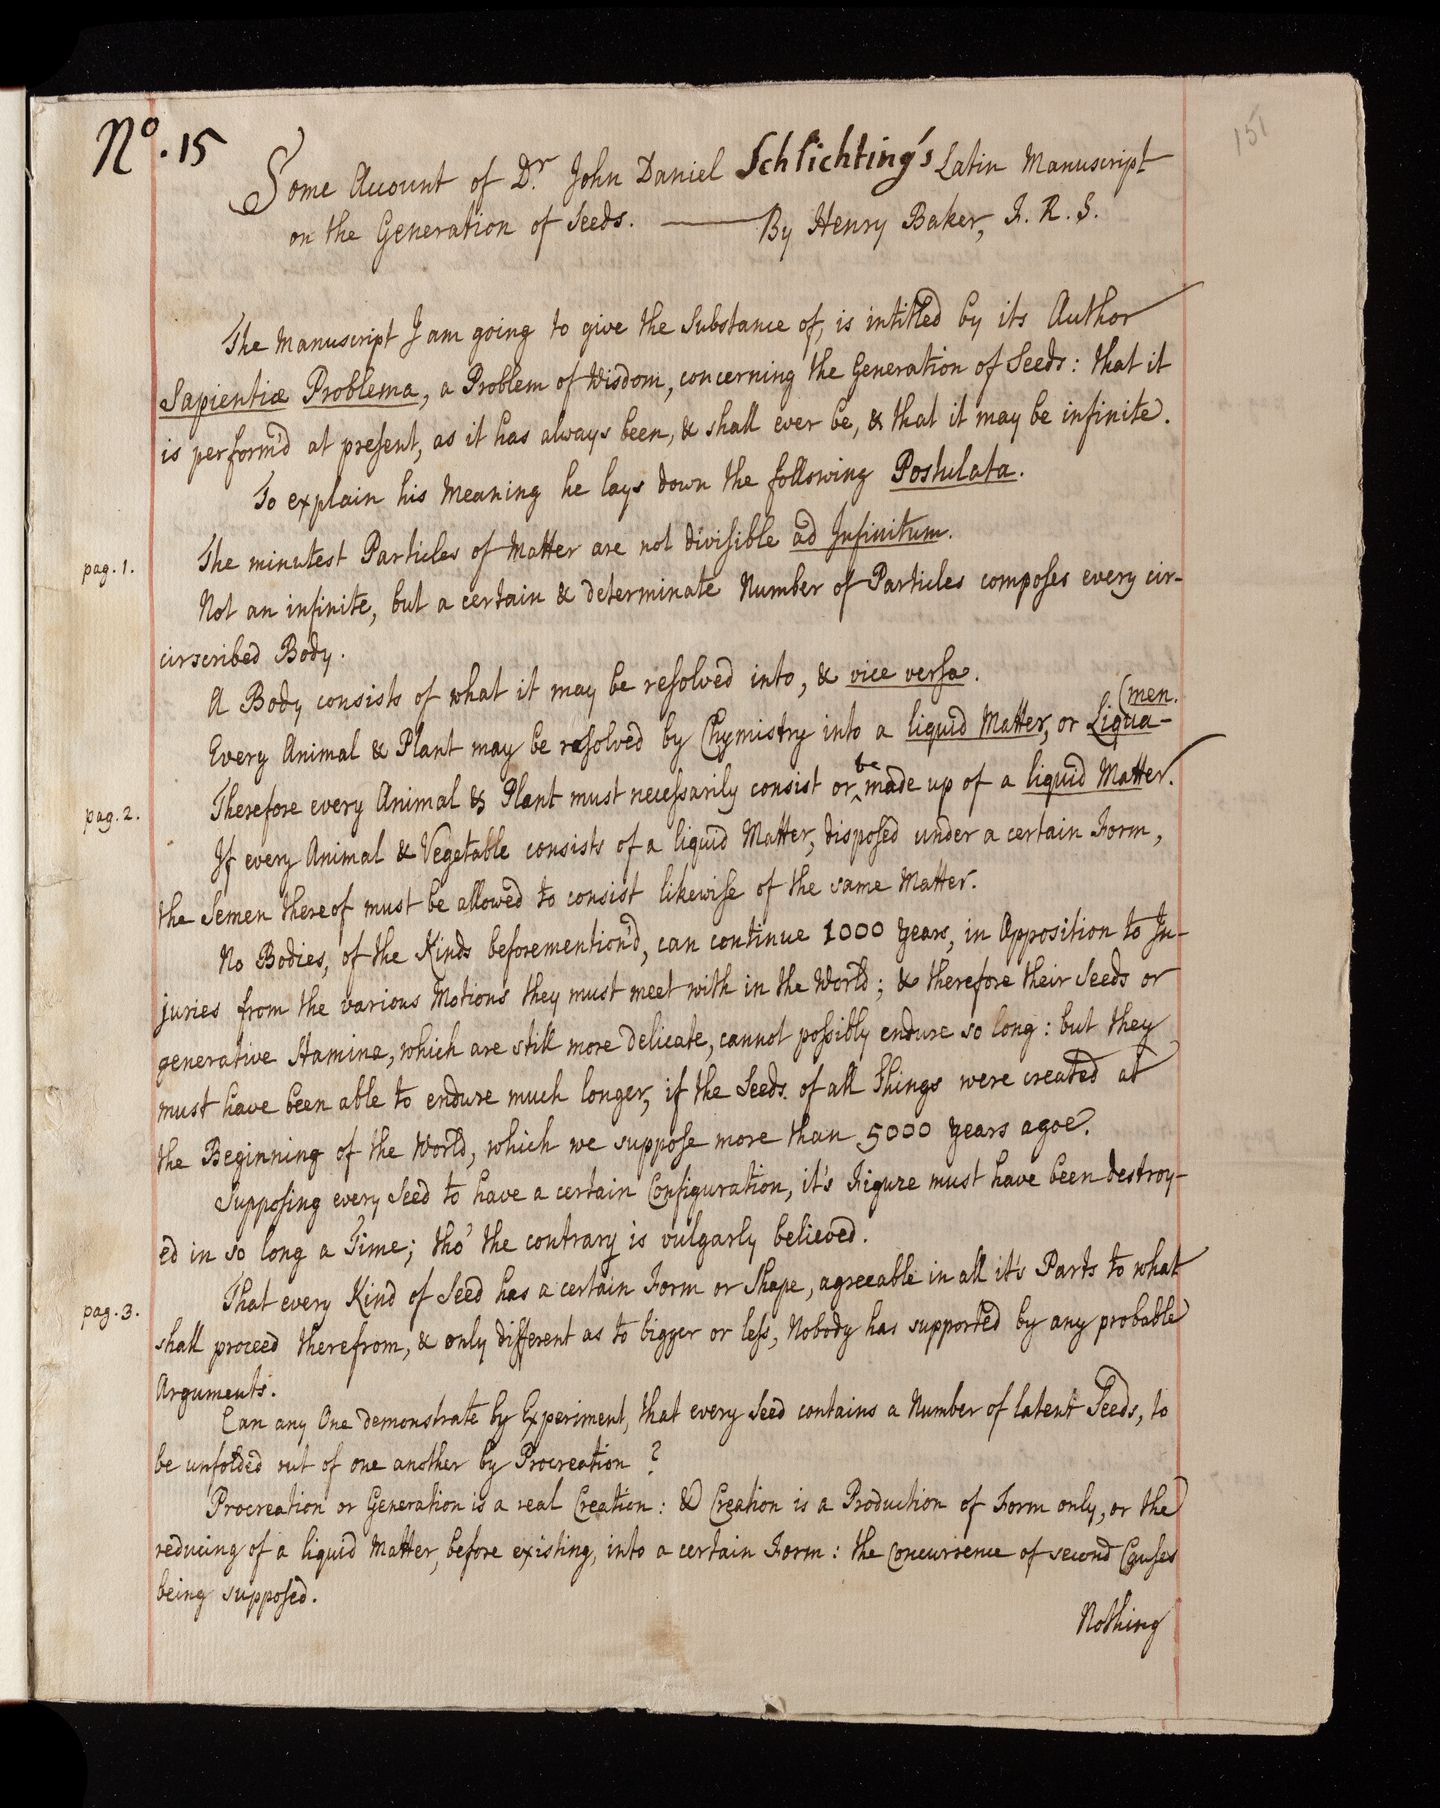 151
No. 15
Some Account of Dr. John Daniel Schlichting's Latin Manuscript
on the Generation of Seeds. —— By Henry Baker, F. R. S.
The Manuscript I am going to give the Substance of, is intitled by its Author
Sapientiæ Problema, a Problem of Wisdom, concerning the Generation of Seeds: that it
is perform'd at present, as it has always been, & shall ever be, & that it may be infinite.
To explain his Meaning he lays down the following Postulata.
pag. 1. The minutest Particles of Matter are not divisible ad Infinitum.
Not an infinite, but a certain & determinate Number of Particles composes every cir-
cirscribed Body.
A Body consists of what it may be resolved into, & vice versa.
Every Animal & Plant may be resolved by Chymistry into a liquid Matter, or Liqua-
(men.
pag. 2. Therefore every Animal & Plant must necessarily consist or be made up of a liquid Matter.
If every Animal & Vegetable consists of a liquid Matter, disposed under a certain Form,
the Semen thereof must be allowed to consist likewise of the same Matter.
No Bodies, of the Kinds beforemention'd, can continue 1000 Years, in Opposition to In-
juries from the various Motions they must meet with in the World; & therefore their Seeds or
generative Stamina, which are still more delicate, cannot possibly endure so long: but they
must have been able to endure much longer, if the Seeds of all Things were created at
the Beginning of the World, which we suppose more than 5000 Years agoe.
Supposing every Seed to have a certain Configuration, it's Figure must have been destroy-
ed in so long a Time; tho' the contrary is vulgarly believed.
pag. 3. That every Kind of Seed has a certain Form or Shape, agreeable in all it's Parts to what
shall proceed therefrom, & only different as to bigger or less, Nobody has supported by any probable
Arguments.
Can any One demonstrate by Experiment, that every Seed contains a Number of latent Seeds, to
be unfolded out of one another by Procreation?
Procreation or Generation is a real Creation: & Creation is a Production of Form only, or the
reducing of a liquid Matter, before existing, into a certain Form: the Concurrence of second Causes
being supposed.
Nothing